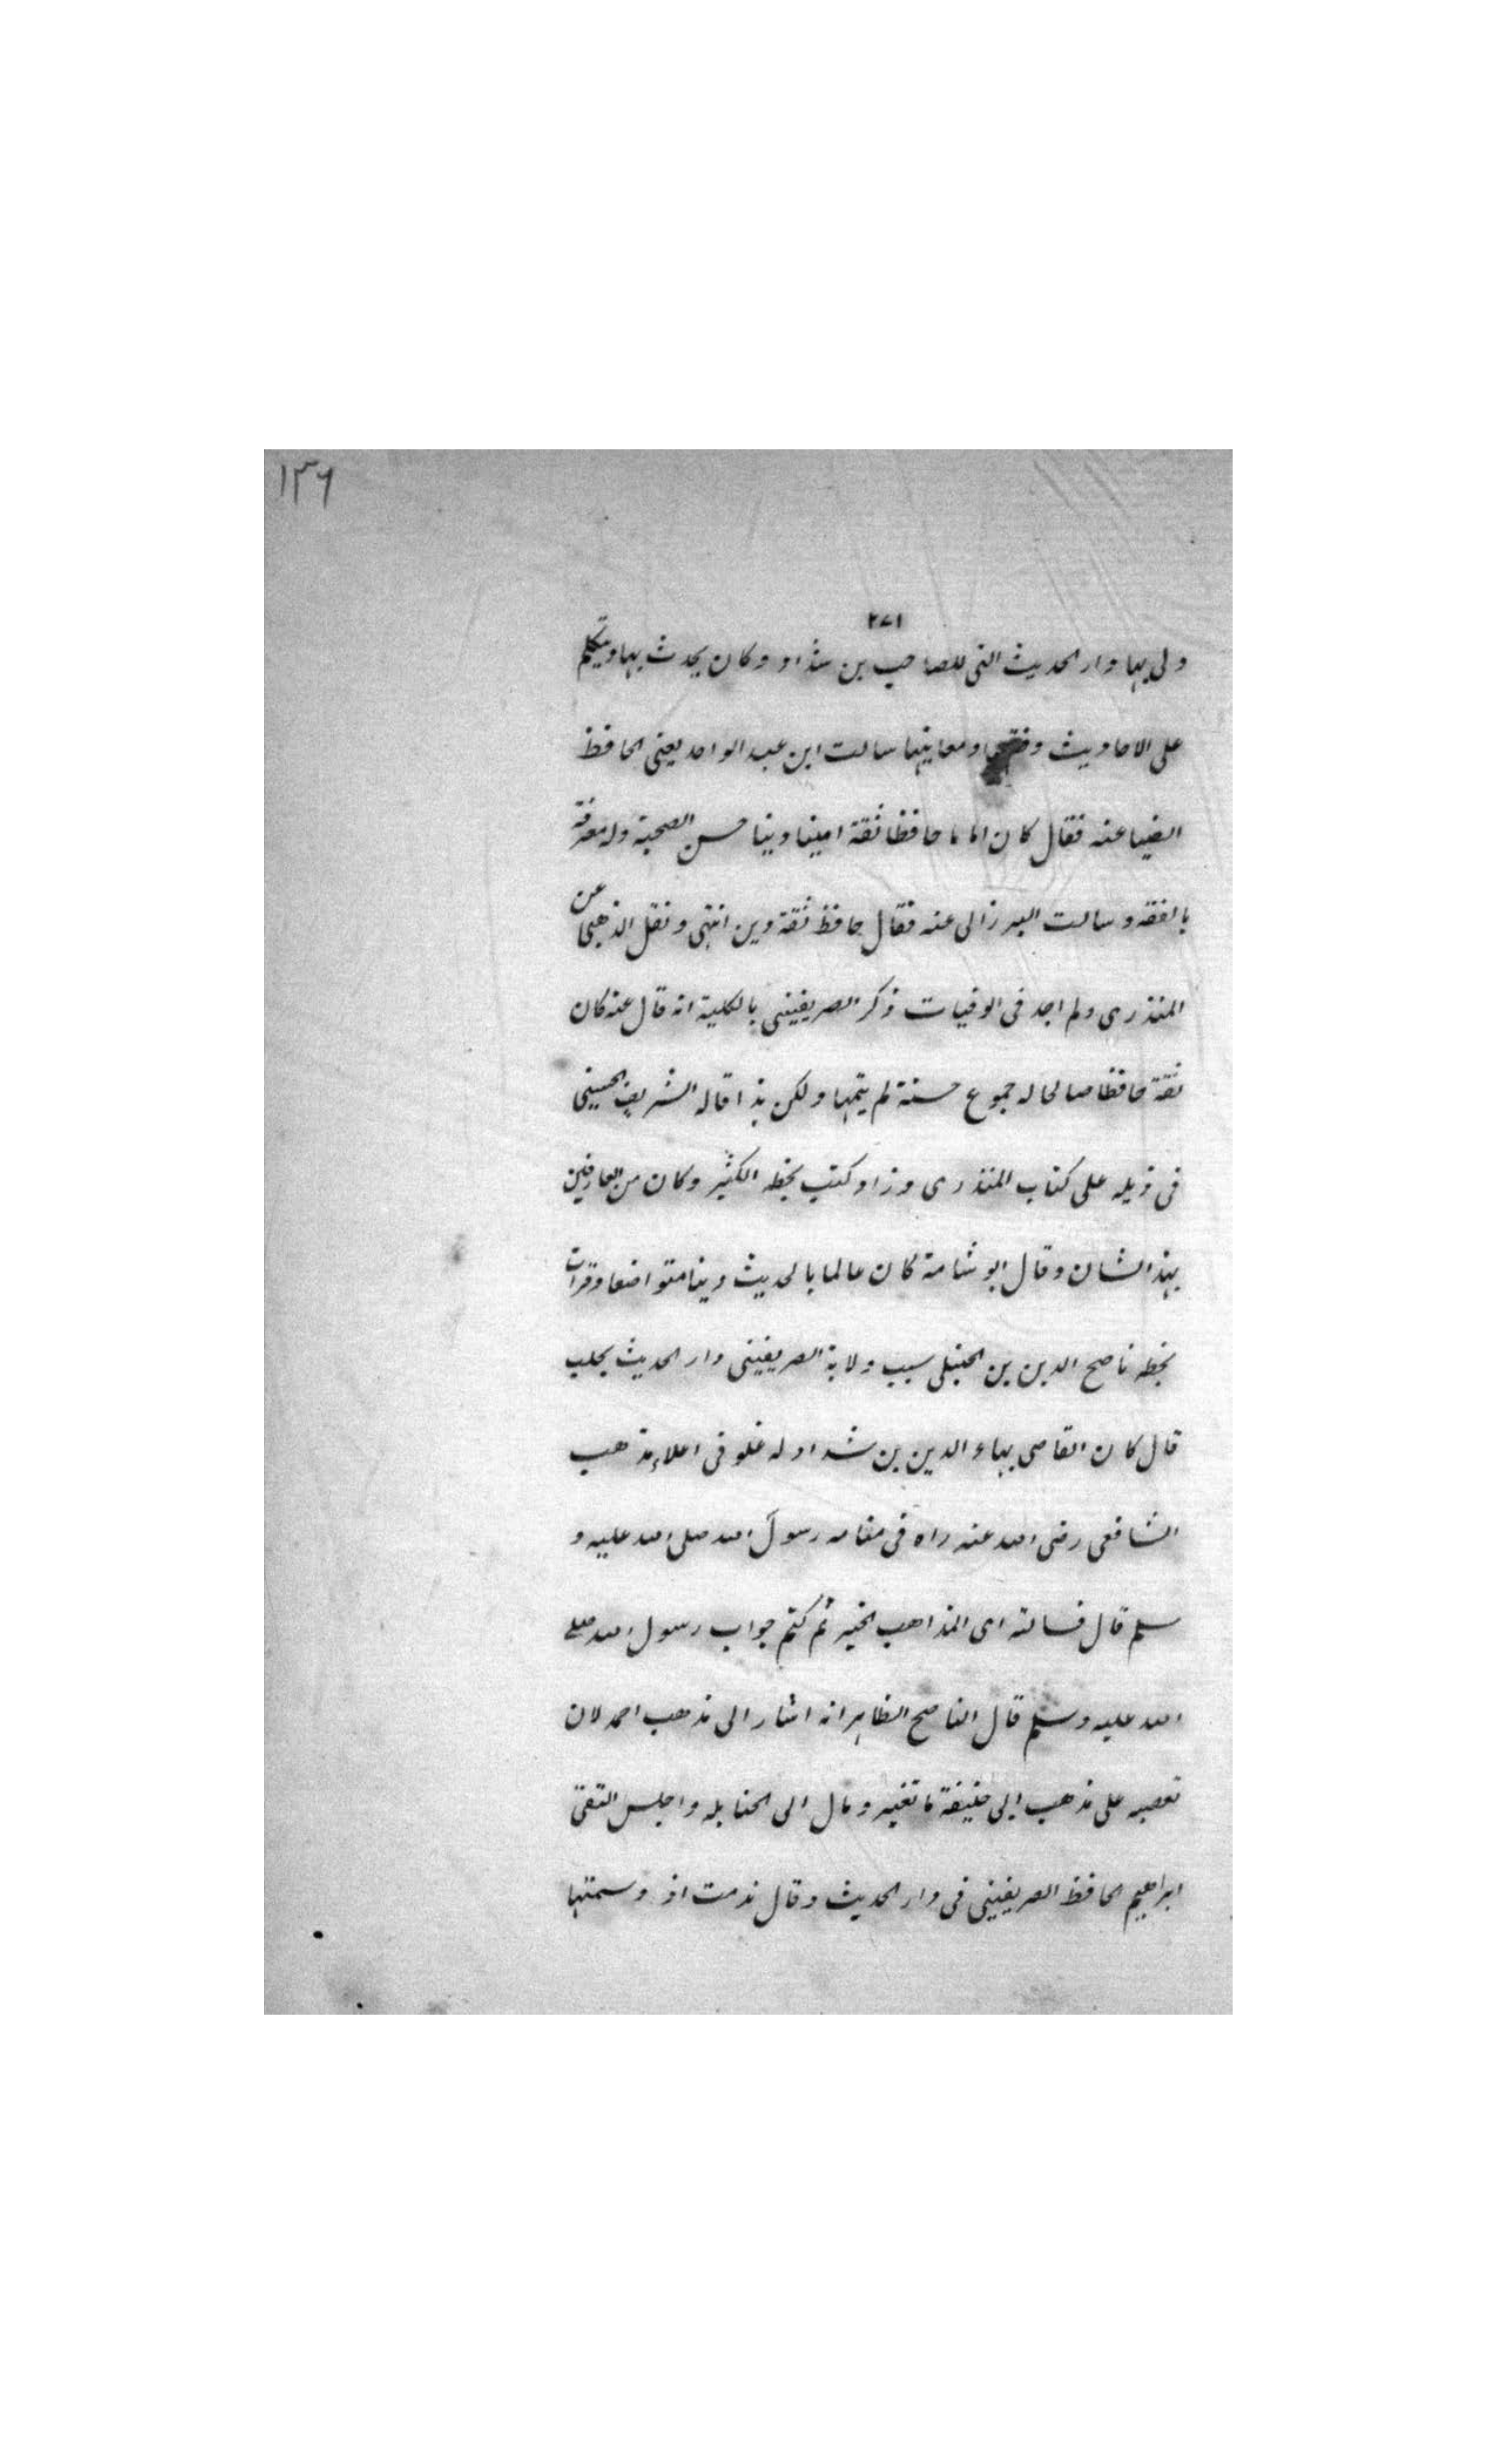 ١٣٦
٢٧١
ولى بها دار الحديث التى للصاحب بن شداد وكان يحدث بها ويتكلم
على الاحاديث وفقهها ومعانيها سالت ابن عبد الواحد يعنى الحافظ
الضيا عنه فقال كان اماما حافظا ثقة امينا دينا حسن الصحبة وله معرفة
بالفقه وسالت البرزالى عنه فقال حافظ ثقة دين انتهى ونقل الذهبى عن
المنذرى ولم اجد فى الوفيات ذكر الصريفينى بالكلية انه قال عنه كان
ثقة حافظا صالحا له جموع حسنة لم يتمها ولكن هذا قاله الشريف الحسينى
فى ذيله على كتاب المنذرى وزاد كتب بخطه الكثير وكان من العارفين
بهذا الشان وقال ابو شامة كان عالما بالحديث دينا متواضعا وقرات
بخط ناصح الدين بن الحنبلى سبب ولاية الصريفينى دار الحديث بحلب
قال كان القاضى بهاء الدين بن شداد له غلو فى اعلاء مذهب
الشافعى رضى الله عنه راه فى منامه رسول الله صلى الله عليه و
سلم قال فسالته اى المذاهب خير ثم كتم جواب رسول الله صلى
الله عليه وسلم قال الناصح الظاهر انه اشار الى مذهب احمد لان
تعصبه على مذهب ابى حنيفة ما تغير ومال الى الحنابله واجلس التقى
ابراهيم الحافظ الصريفينى فى دار الحديث وقال ندمت اذ وسمتها